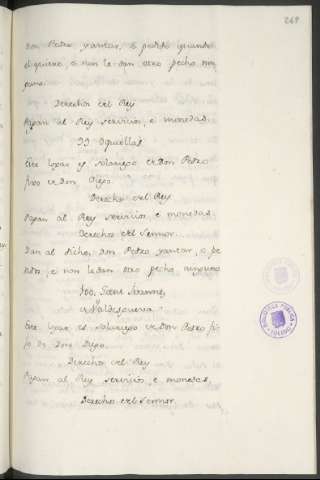 269
Don Pedro yantar, e pedido quando
el quiere, e non le dan otro pecho nin
guno.
Derechos del Rey
Pagan al Rey servicios, e monedas.
99. Oquellas
Este logar es solariego de Don Pedro
fijo de Don Diego.
Derechos del Rey
Pagan al Rey servicios, e monedas
Derechos del Sennor.
Dan al dicho Don Pedro yantar, e pe
dido, e non le dan otro pecho ninguno
100. Sant Ioannes
de Valdesueva
Este logar es solariego de Don Pedro fi
jo de Don Diego.
Derechos del Rey
Pagan al Rey servicios, e monedas.
Derechos del Sennor.
BIBLIOTECA PUBLICA
TOLEDO